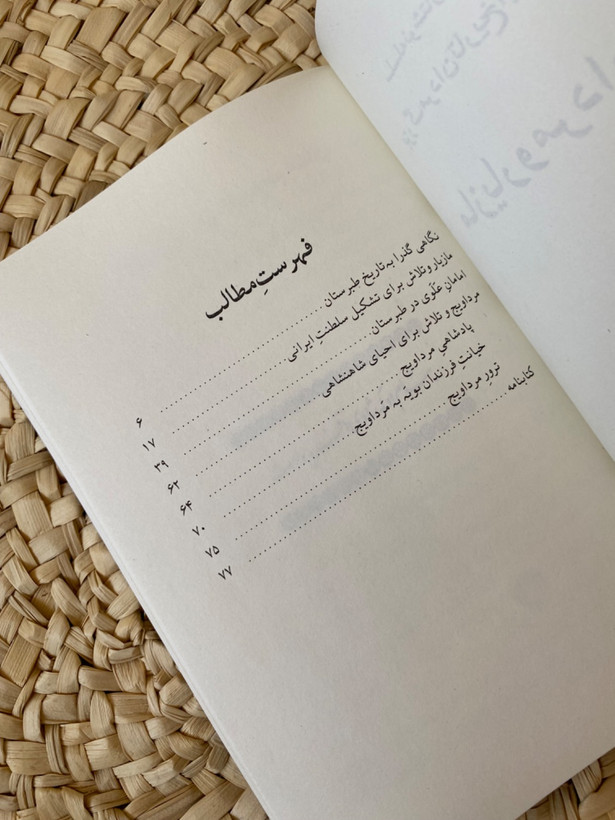 فهرستِ مطالب
نگاهی گذرا به تاریخ طبرستان ۶
مازیار و تلاش برای تشکیل سلطنتِ ایرانی ۱۷
امامانِ عَلَوی در طبرستان ۳۹
مرداویج و تلاش برای احیای شاهنشاهی ۶۲
پادشاهیِ مرداویج ۶۴
خیانتِ فرزندان بویَه به مرداویج ۷۰
ترورِ مرداویج ۷۵
کتابنامه ۷۷